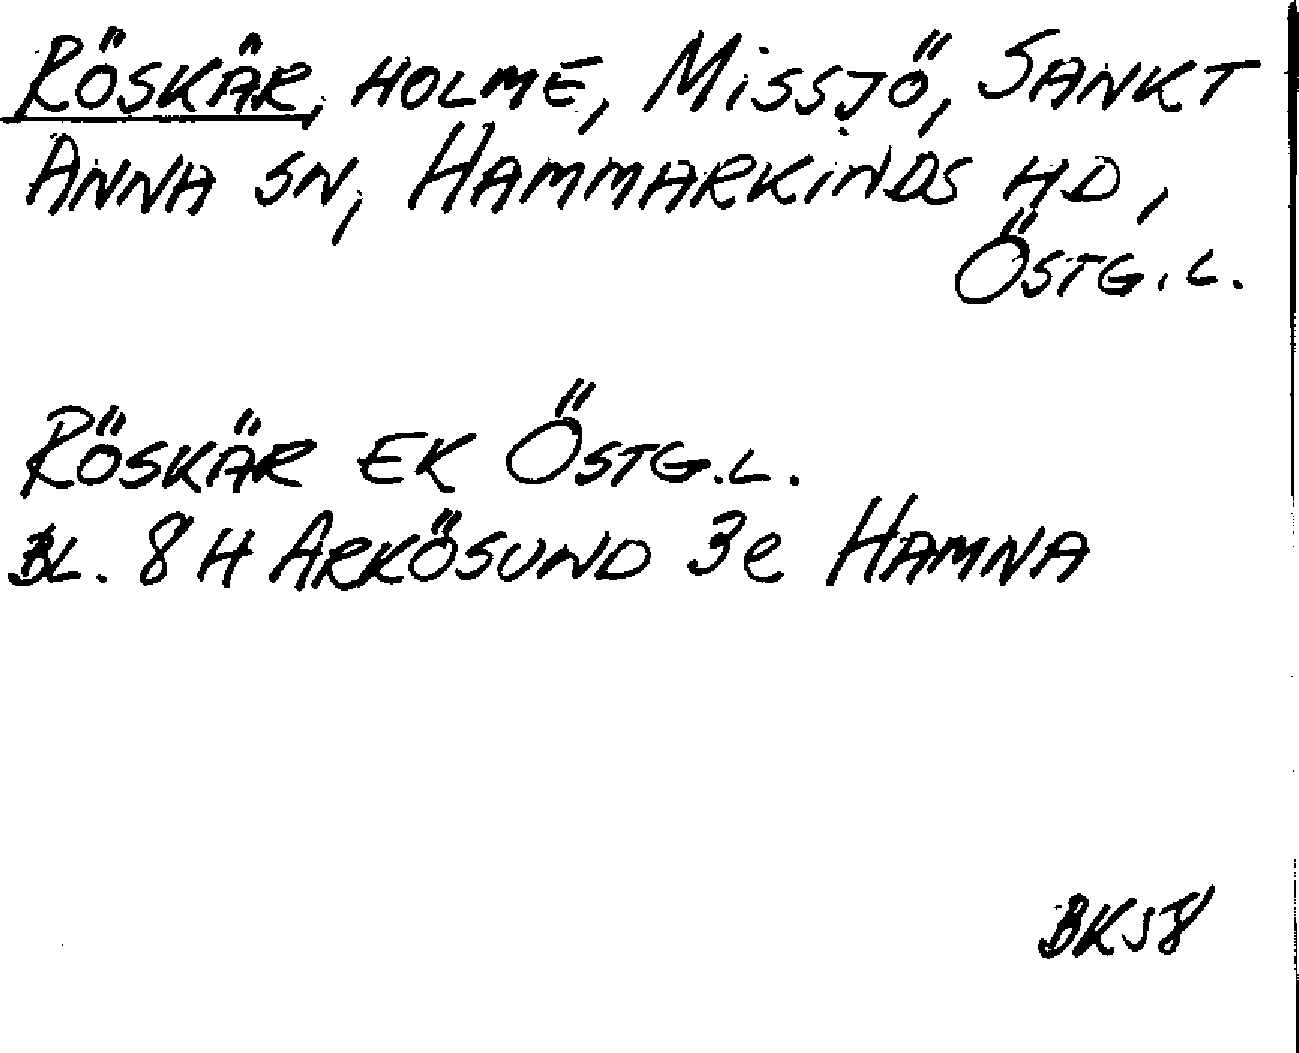 RÖSKÄR, HOLME, MISSJÖ, SANKT
ANNA SN, HAMMARKINDS HD,
ÖSTG. L.
RÖSKÄR EK ÖSTG. L.
BL. 8 H ARKÖSUND 3e HAMNA
BK58